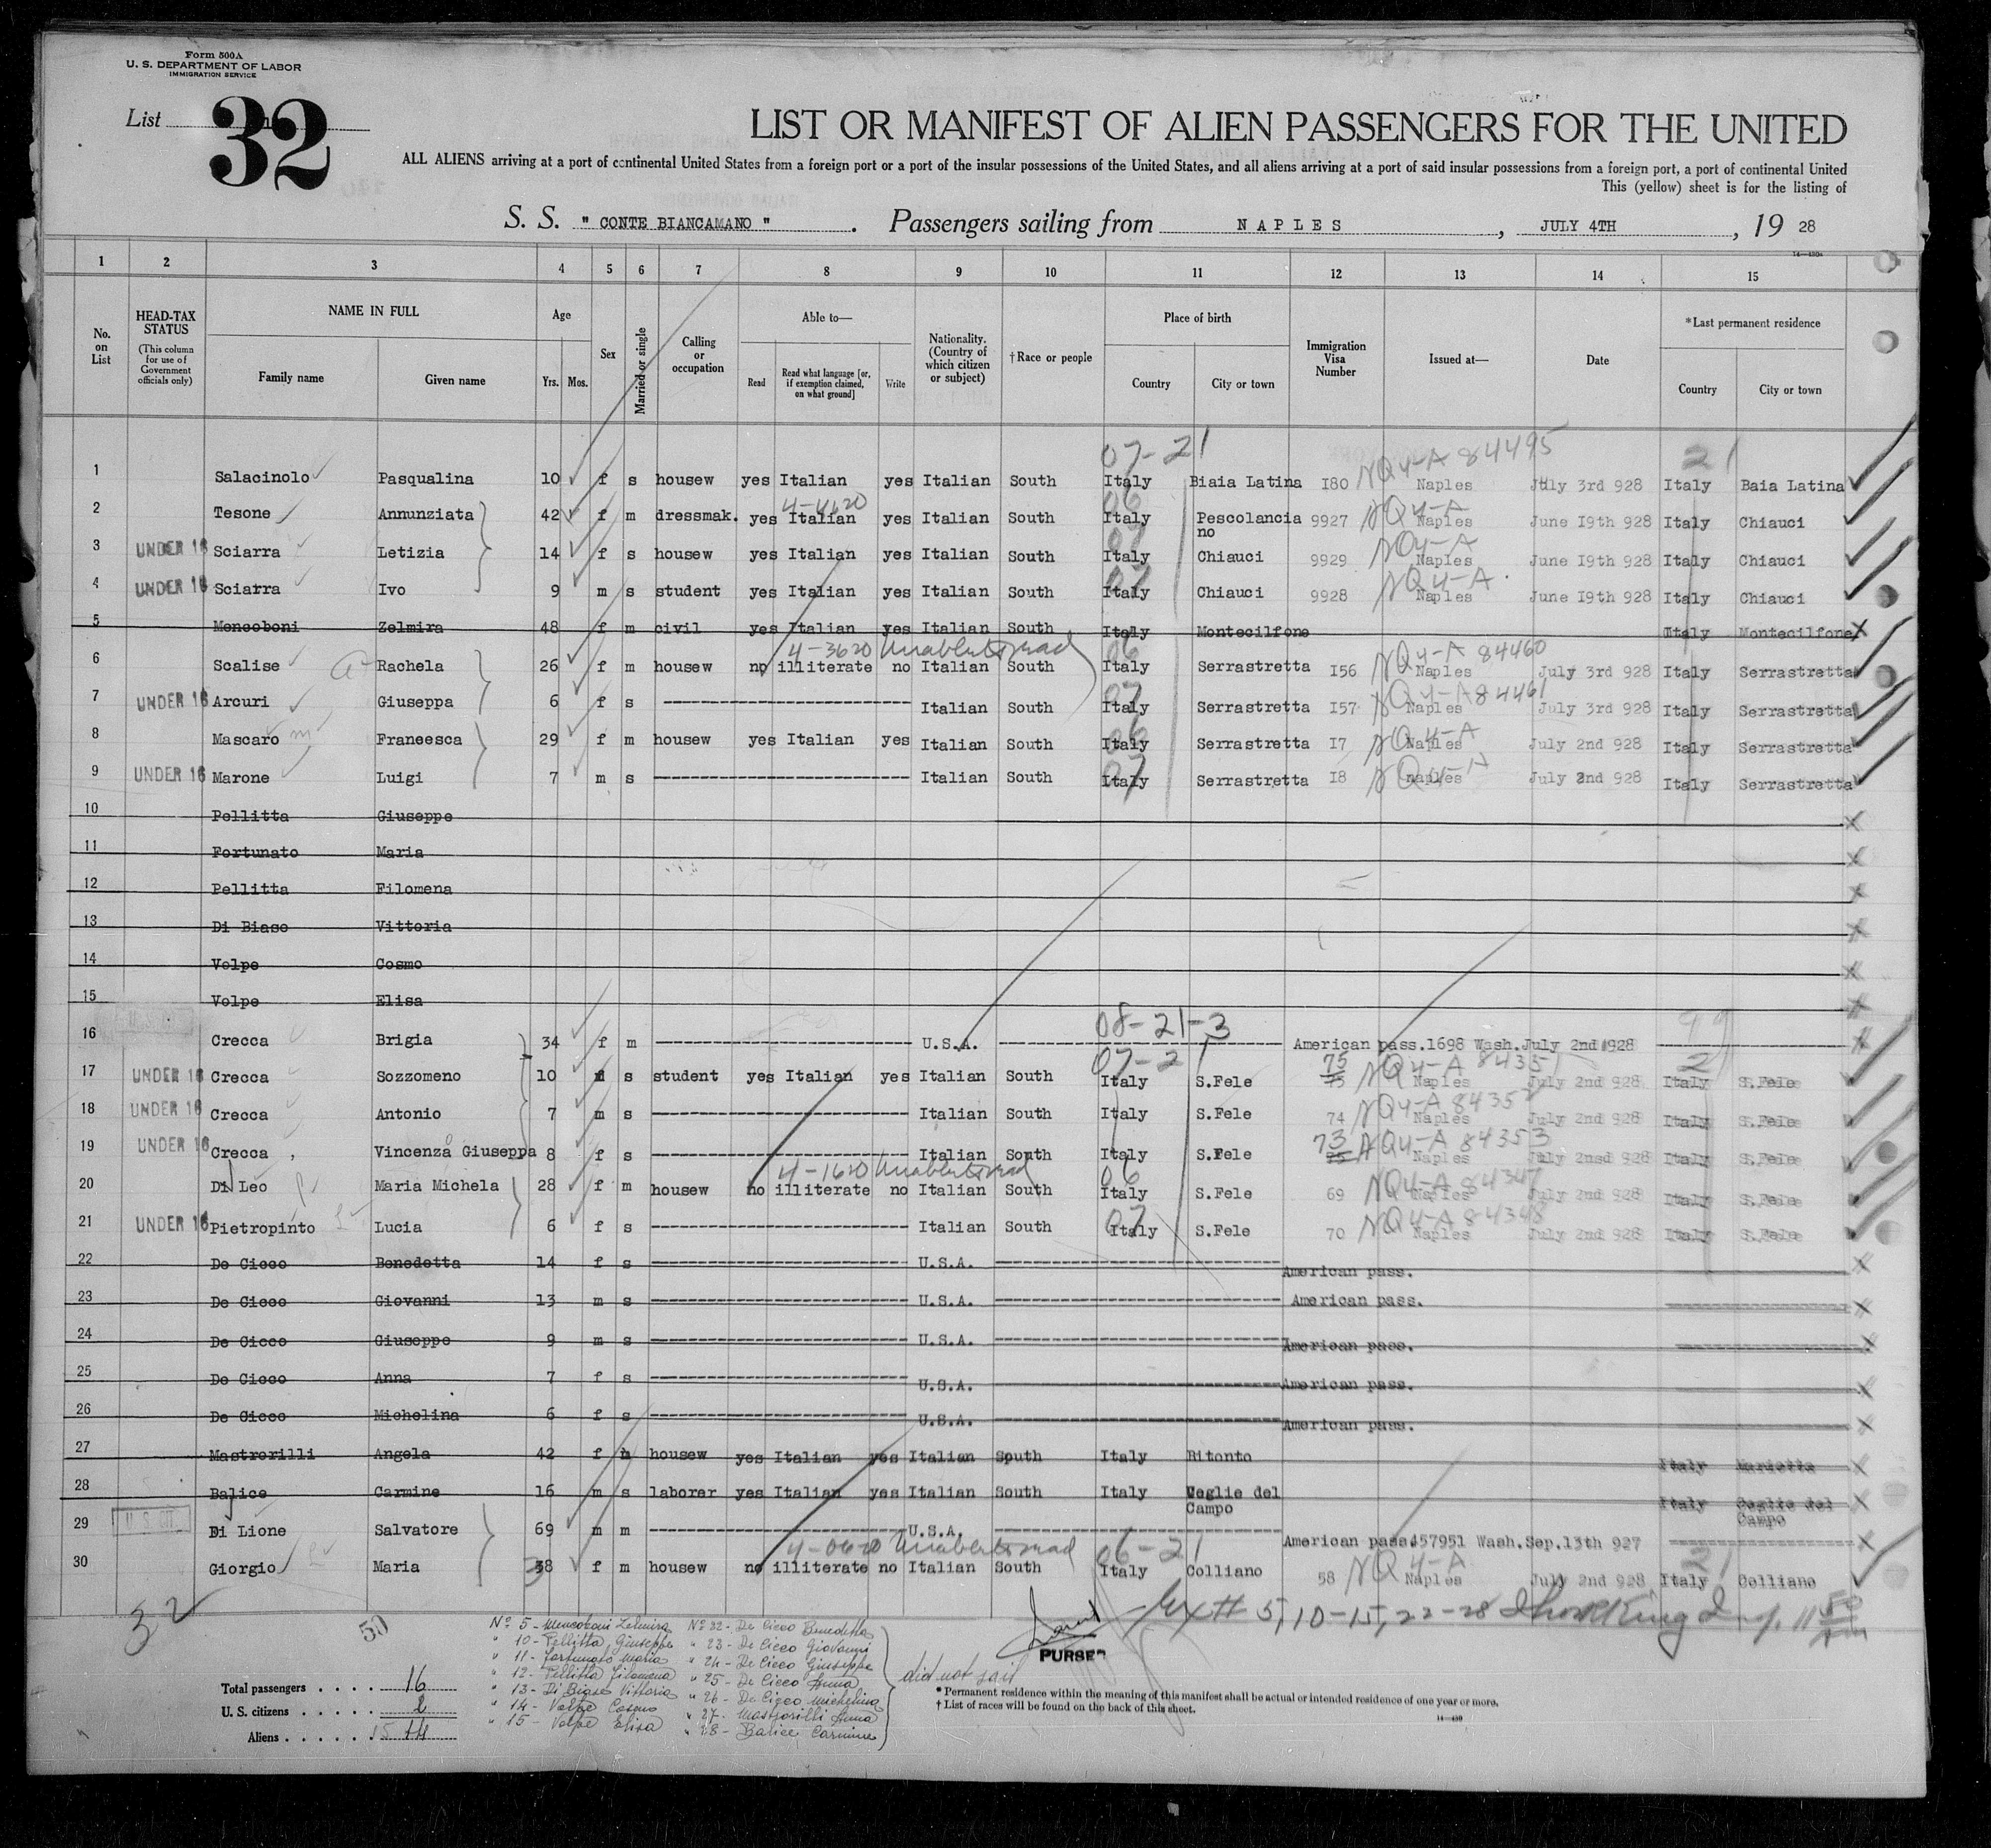 Form 500A
U. S. DEPARTMENT OF LABOR
IMMIGRATION SERVICE
List 32
LIST OR MANIFEST OF ALIEN PASSENGERS FOR THE UNITED
ALL ALIENS arriving at a port of continental United States from a foreign port or a port of the insular possessions of the United States, and all aliens arriving at a port of said insular possessions from a foreign port, a port of continental United
This (yellow) sheet is for the listing of
S. S. " CONTE BIANCAMANO " . Passengers sailing from NAPLES , JULY 4TH , 19 28
1 2 3 4 5 6 7 8 9 10 11 12 13 14 15
No. on List
HEAD-TAX STATUS
(This column for use of Government officials only)
NAME IN FULL
Family name Given name
Age
Yrs. Mos.
Sex
Married or single
Calling or occupation
Able to—
Read Read what language [or, if exemption claimed, on what ground] Write
Nationality. (Country of which citizen or subject)
†Race or people
Place of birth
Country City or town
Immigration Visa Number
Issued at—
Date
*Last permanent residence
Country City or town
07-21 NQ4-A 84495 21
1 Salacinolo Pasqualina 10 f s housew yes Italian yes Italian South Italy Biaia Latina I80 Naples July 3rd 928 Italy Baia Latina
4-4620 06 NQ4-A
2 Tesone Annunziata 42 f m dressmak. yes Italian yes Italian South Italy Pescolancia no 9927 Naples June I9th 928 Italy Chiauci
07 NQ4-A
3 UNDER 16 Sciarra Letizia 14 f s housew yes Italian yes Italian South Italy Chiauci 9929 Naples June I9th 928 Italy Chiauci
07 NQ4-A
4 UNDER 16 Sciarra Ivo 9 m s student yes Italian yes Italian South Italy Chiauci 9928 Naples June I9th 928 Italy Chiauci
5 Mencoboni Zelmira 48 f m civil yes Italian yes Italian South Italy Montecilfone Italy Montecilfone X
4-3620 Unable to read 06 NQ4-A 84460
6 Scalise Rachela 26 f m housew no illiterate no Italian South Italy Serrastretta I56 Naples July 3rd 928 Italy Serrastretta
07 NQ4-A 84461
7 UNDER 16 Arcuri Giuseppa 6 f s Italian South Italy Serrastretta I57 Naples July 3rd 928 Italy Serrastretta
06 NQ4-A
8 Mascaro Francesca 29 f m housew yes Italian yes Italian South Italy Serrastretta I7 Naples July 2nd 928 Italy Serrastretta
07 NQ4-A
9 UNDER 16 Marone Luigi 7 m s Italian South Italy Serrastretta I8 naples July 2nd 928 Italy Serrastretta
10 Pellitta Giuseppe X
11 Fortunato Maria X
12 Pellitta Filomena X
13 Di Biase Vittoria X
14 Volpe Cosmo X
15 Volpe Elisa X
08-21-3 99
16 Crecca Brigia 34 f m U.S.A. American pass.1698 Wash.July 2nd 1928 X
07-21 75 NQ4-A 84351 2
17 UNDER 16 Crecca Sozzomeno 10 m s student yes Italian yes Italian South Italy S.Fele 75 Naples July 2nd 928 Italy S.Fele
NQ4-A 84352
18 UNDER 16 Crecca Antonio 7 m s Italian South Italy S.Fele 74 Naples July 2nd 928 Italy S.Fele
73 NQ4-A 84353
19 UNDER 16 Crecca , Vincenza Giuseppa 8 f s Italian South Italy S.Fele Naples July 2nsd 928 Italy S.Fele
4-1620 Unable to read 06 NQ4-A 84347
20 Di Leo Maria Michela 28 f m housew no illiterate no Italian South Italy S.Fele 69 Naples July 2nd 928 Italy S.Fele
07 NQ4-A 84348
21 UNDER 16 Pietropinto Lucia 6 f s Italian South Italy S.Fele 70 Naples July 2nd 928 Italy S.Fele
22 De Cicco Benedetta 14 f s U.S.A. American pass. X
23 De Cicco Giovanni 13 m s U.S.A. American pass. X
24 De Cicco Giuseppe 9 m s U.S.A. American pass. X
25 De Cicco Anna 7 f s U.S.A. American pass. X
26 De Cicco Michelina 6 f s U.S.A. American pass. X
27 Mastrorilli Angela 42 f m housew yes Italian yes Italian South Italy Bitonto Italy X
28 Balice Carmine 16 m s laborer yes Italian yes Italian South Italy Ceglie del Campo Italy Ceglie del Campo X
29 U S CIT. Di Lione Salvatore 69 m m U.S.A. American pass.457951 Wash.Sep.13th 927 X
4-0620 Unable to read 06-21 NQ4-A 21
30 Giorgio Maria 38 f m housew no illiterate no Italian South Italy Colliano 58 Naples July 2nd 928 Italy Colliano
32 50
PURSER
Ex # 5, 10-15, 22-28
Nº 5 - Mencoboni Zelmira Nº 22 - De Cicco Benedetta
" 10 - Pellitta Giuseppe " 23 - De Cicco Giovanni
" 11 - Fortunato Maria " 24 - De Cicco Giuseppe
" 12 - Pellitta Filomena " 25 - De Cicco Anna
" 13 - Di Biase Vittoria " 26 - De Cicco Michelina
" 14 - Volpe Cosmo " 27 - Mastrorilli Anna
" 15 - Volpe Elisa " 28 - Balice Carmine
did not sail
Total passengers . . . . 16
U. S. citizens . . . . . 2
Aliens . . . . . . 15 14
* Permanent residence within the meaning of this manifest shall be actual or intended residence of one year or more.
† List of races will be found on the back of this sheet.
14—430